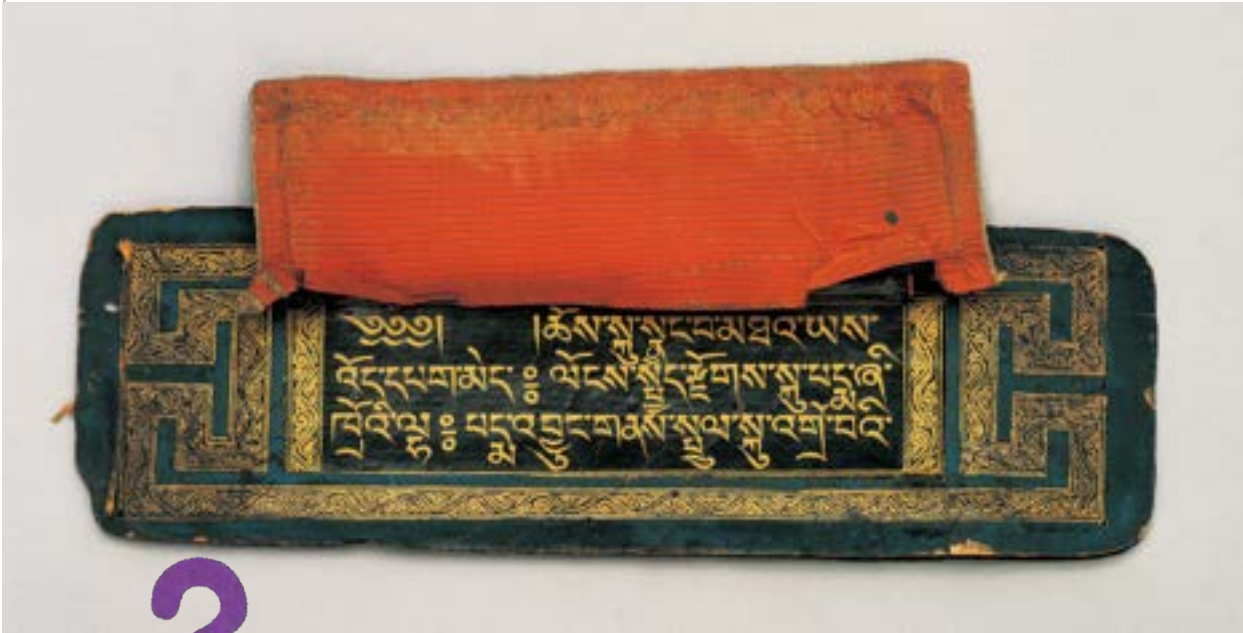 ༄༅༅། །ཆོས་སྐུ་སྣང་བ་མཐའ་ཡས་
འོད་དཔག་མེད༔ ལོངས་སྤྱོད་རྫོགས་སྐུ་པདྨ་ཞི་
ཁྲོའི་ལྷ༔ པདྨ་འབྱུང་གནས་སྤྲུལ་སྐུ་འགྲོ་བའི་